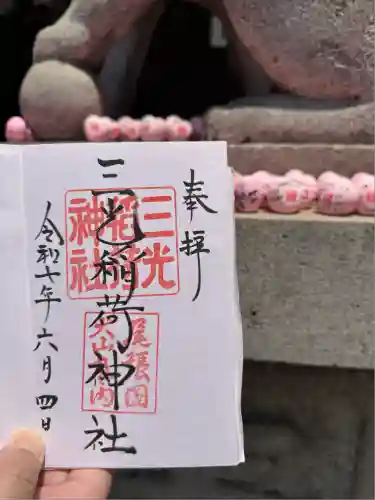 奉拝
三光稲荷神社
令和七年六月四日
三光
稲荷
神社
尾張国
犬山城内